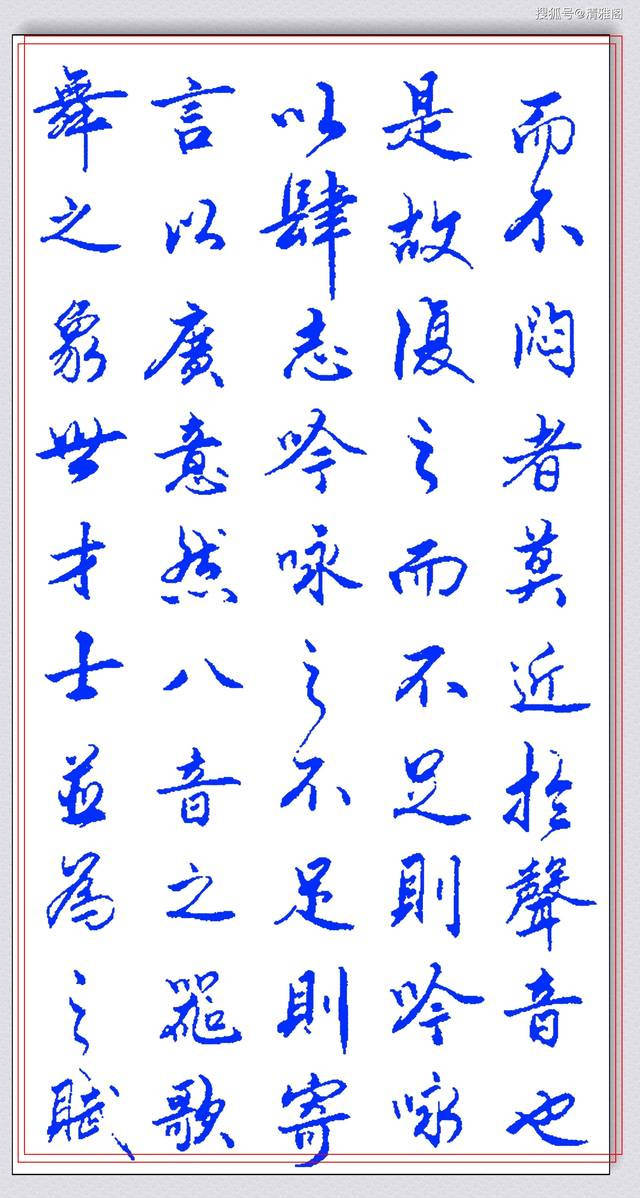 搜狐号@清雅阁
而不悶者莫近於聲音也
是故復之而不足則吟咏
以肆志吟咏之不足則寄
言以廣意然八音之器歌
舞之象世才士並為之賦